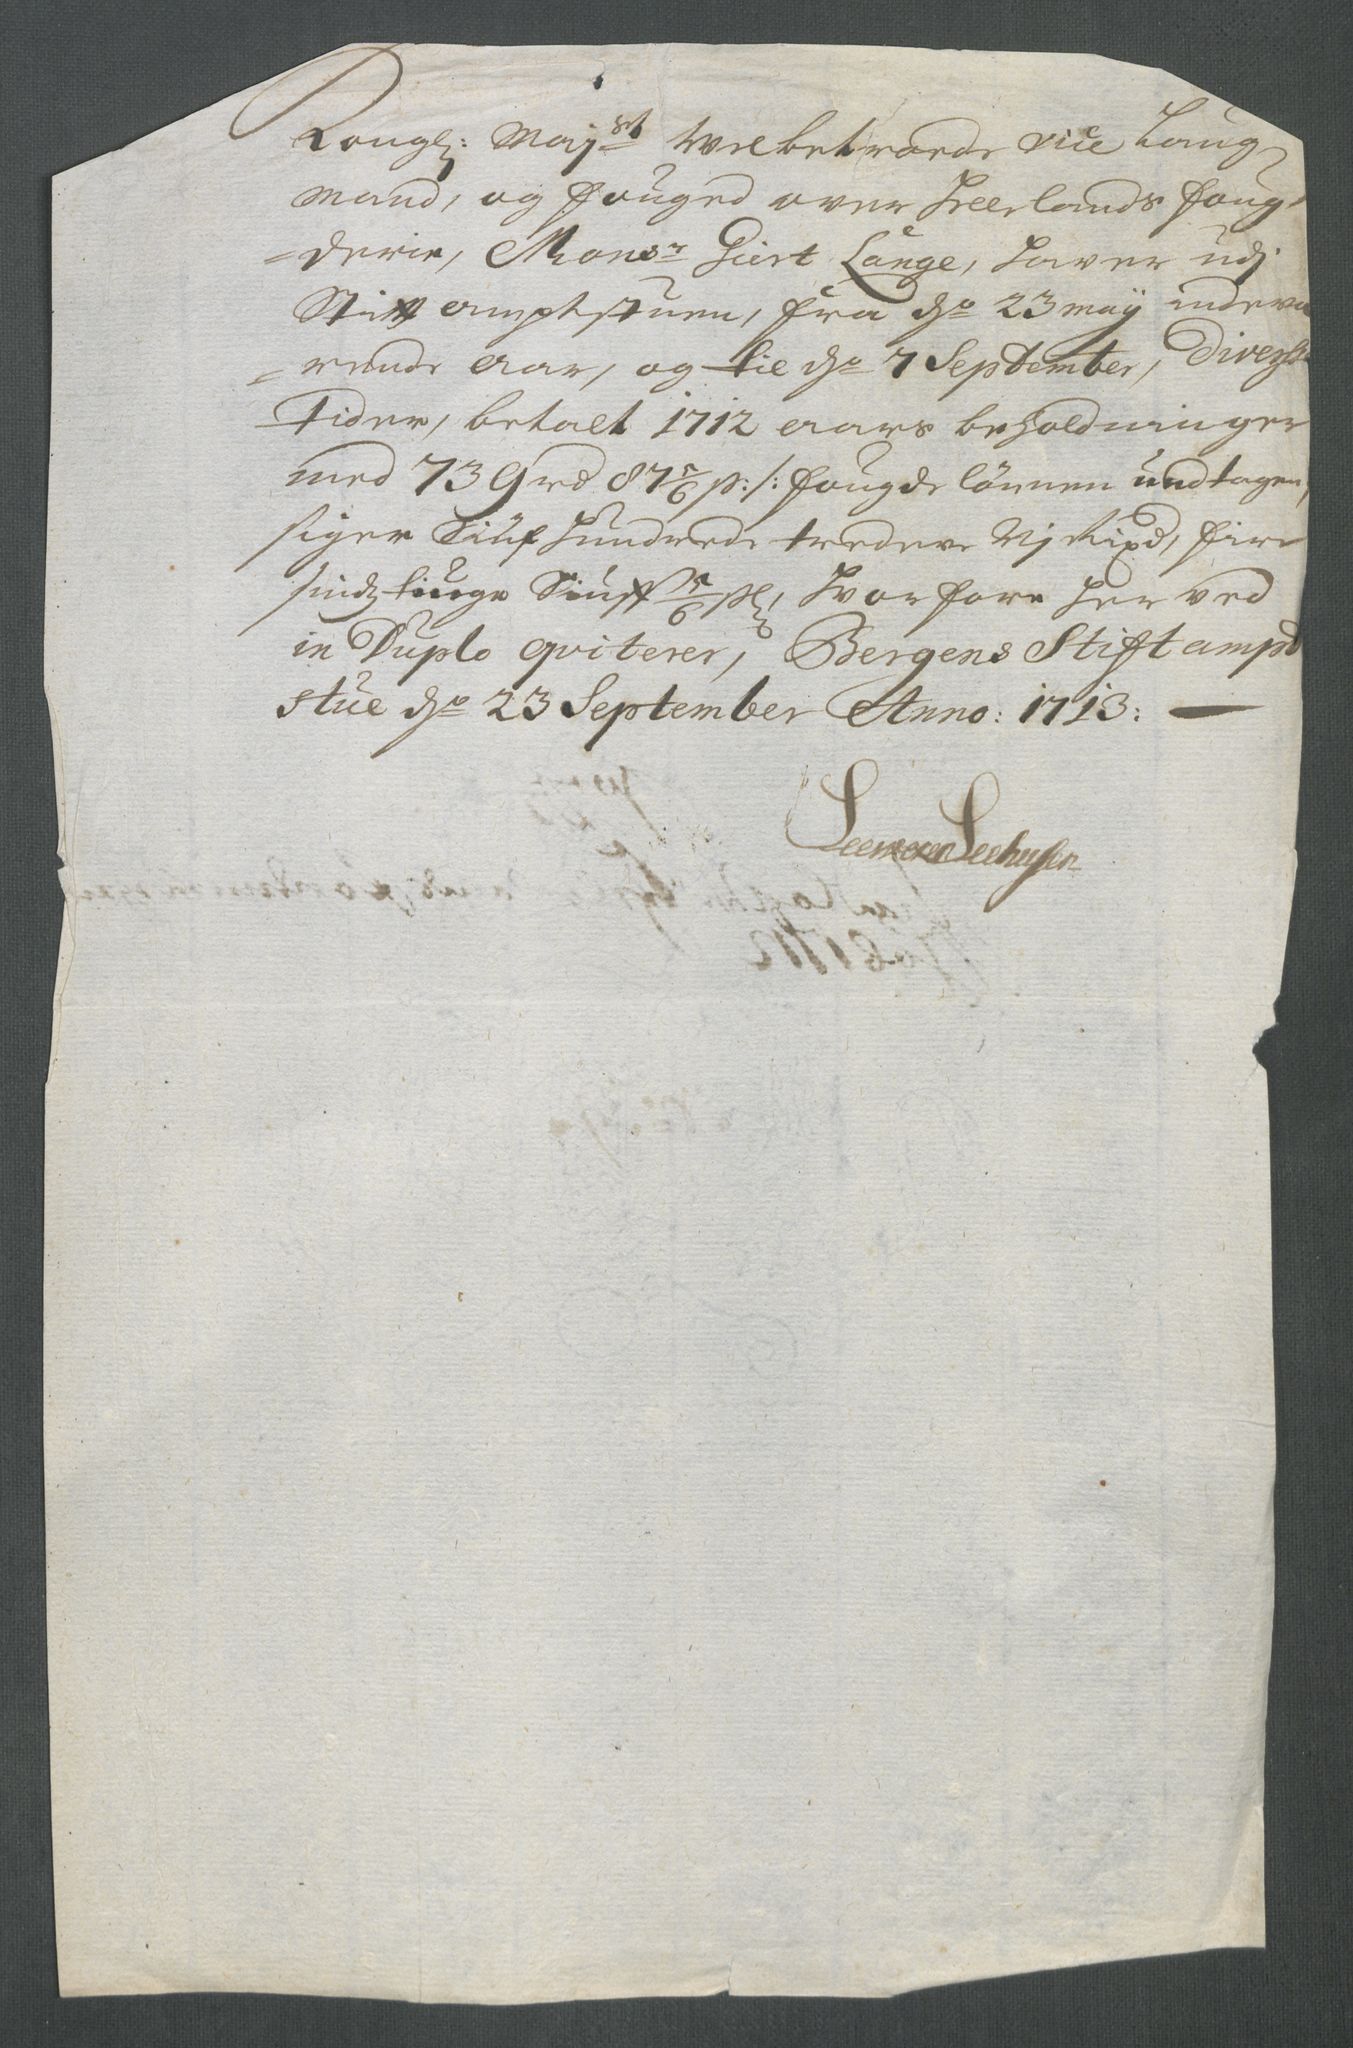 Kongl: Mayst Welbetroede vice Laug
mand, og fouged over Heerlands foug,
=derie, Monsr Giert Lange, haver udj
Stift amptstuen, fra dn 23 maÿ indeva
=rende aar, og til dn 7 September, Diverse
tider, betalt 1712 aars beholdninger
med 739 rd 87 5/6 s: /: fougde lönnen undtagen,
siger Siuf hundrede tredeve Nj Rixd, fire
sindztiuge Siuff 5/6 sl, hvorfore her ved
in Duplo qviterer, Bergens Stiftampt
stue dn 23 September Anno: 1713:
Seehusen